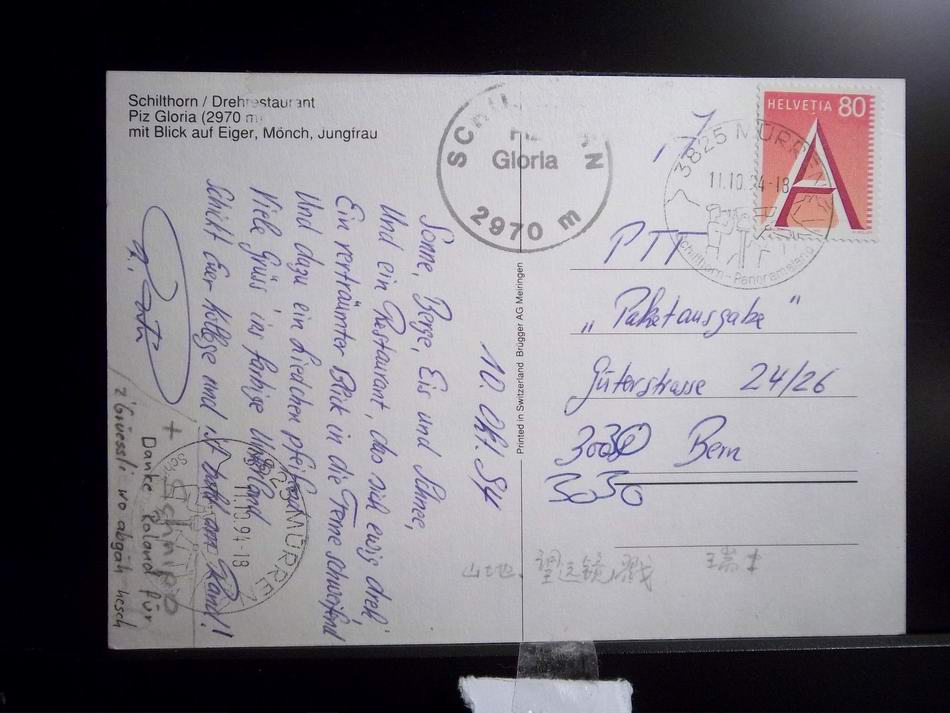 Schilthorn / Drehrestaurant
Piz Gloria (2970 m
mit Blick auf Eiger, Mönch, Jungfrau
SCHILTHORN
Gloria
2970 m
HELVETIA 80
A
3825 MÜRREN
11.10.94-18
Schilthorn-Panoramaland
10. Okt. 94
Sonne, Berge, Eis und Schnee,
Und ein Restaurant, das sich ewig dreh',
Ein verträumter Blick in die Ferne schweifend
Und dazu ein Liedchen pfeifend
Viele Grüss' ins farbige Unterland
Schickt Euer Kollege und
Rand!
+
Danke Roland für
z'Grüessli wo abgäh hesch
3825 MÜRREN
11.10.94-18
Printed in Switzerland Brügger AG Meiringen
A
PTT
„Paketausgabe"
Güterstrasse 24/26
Bern
3030
山地. 望远镜 戳 瑞士